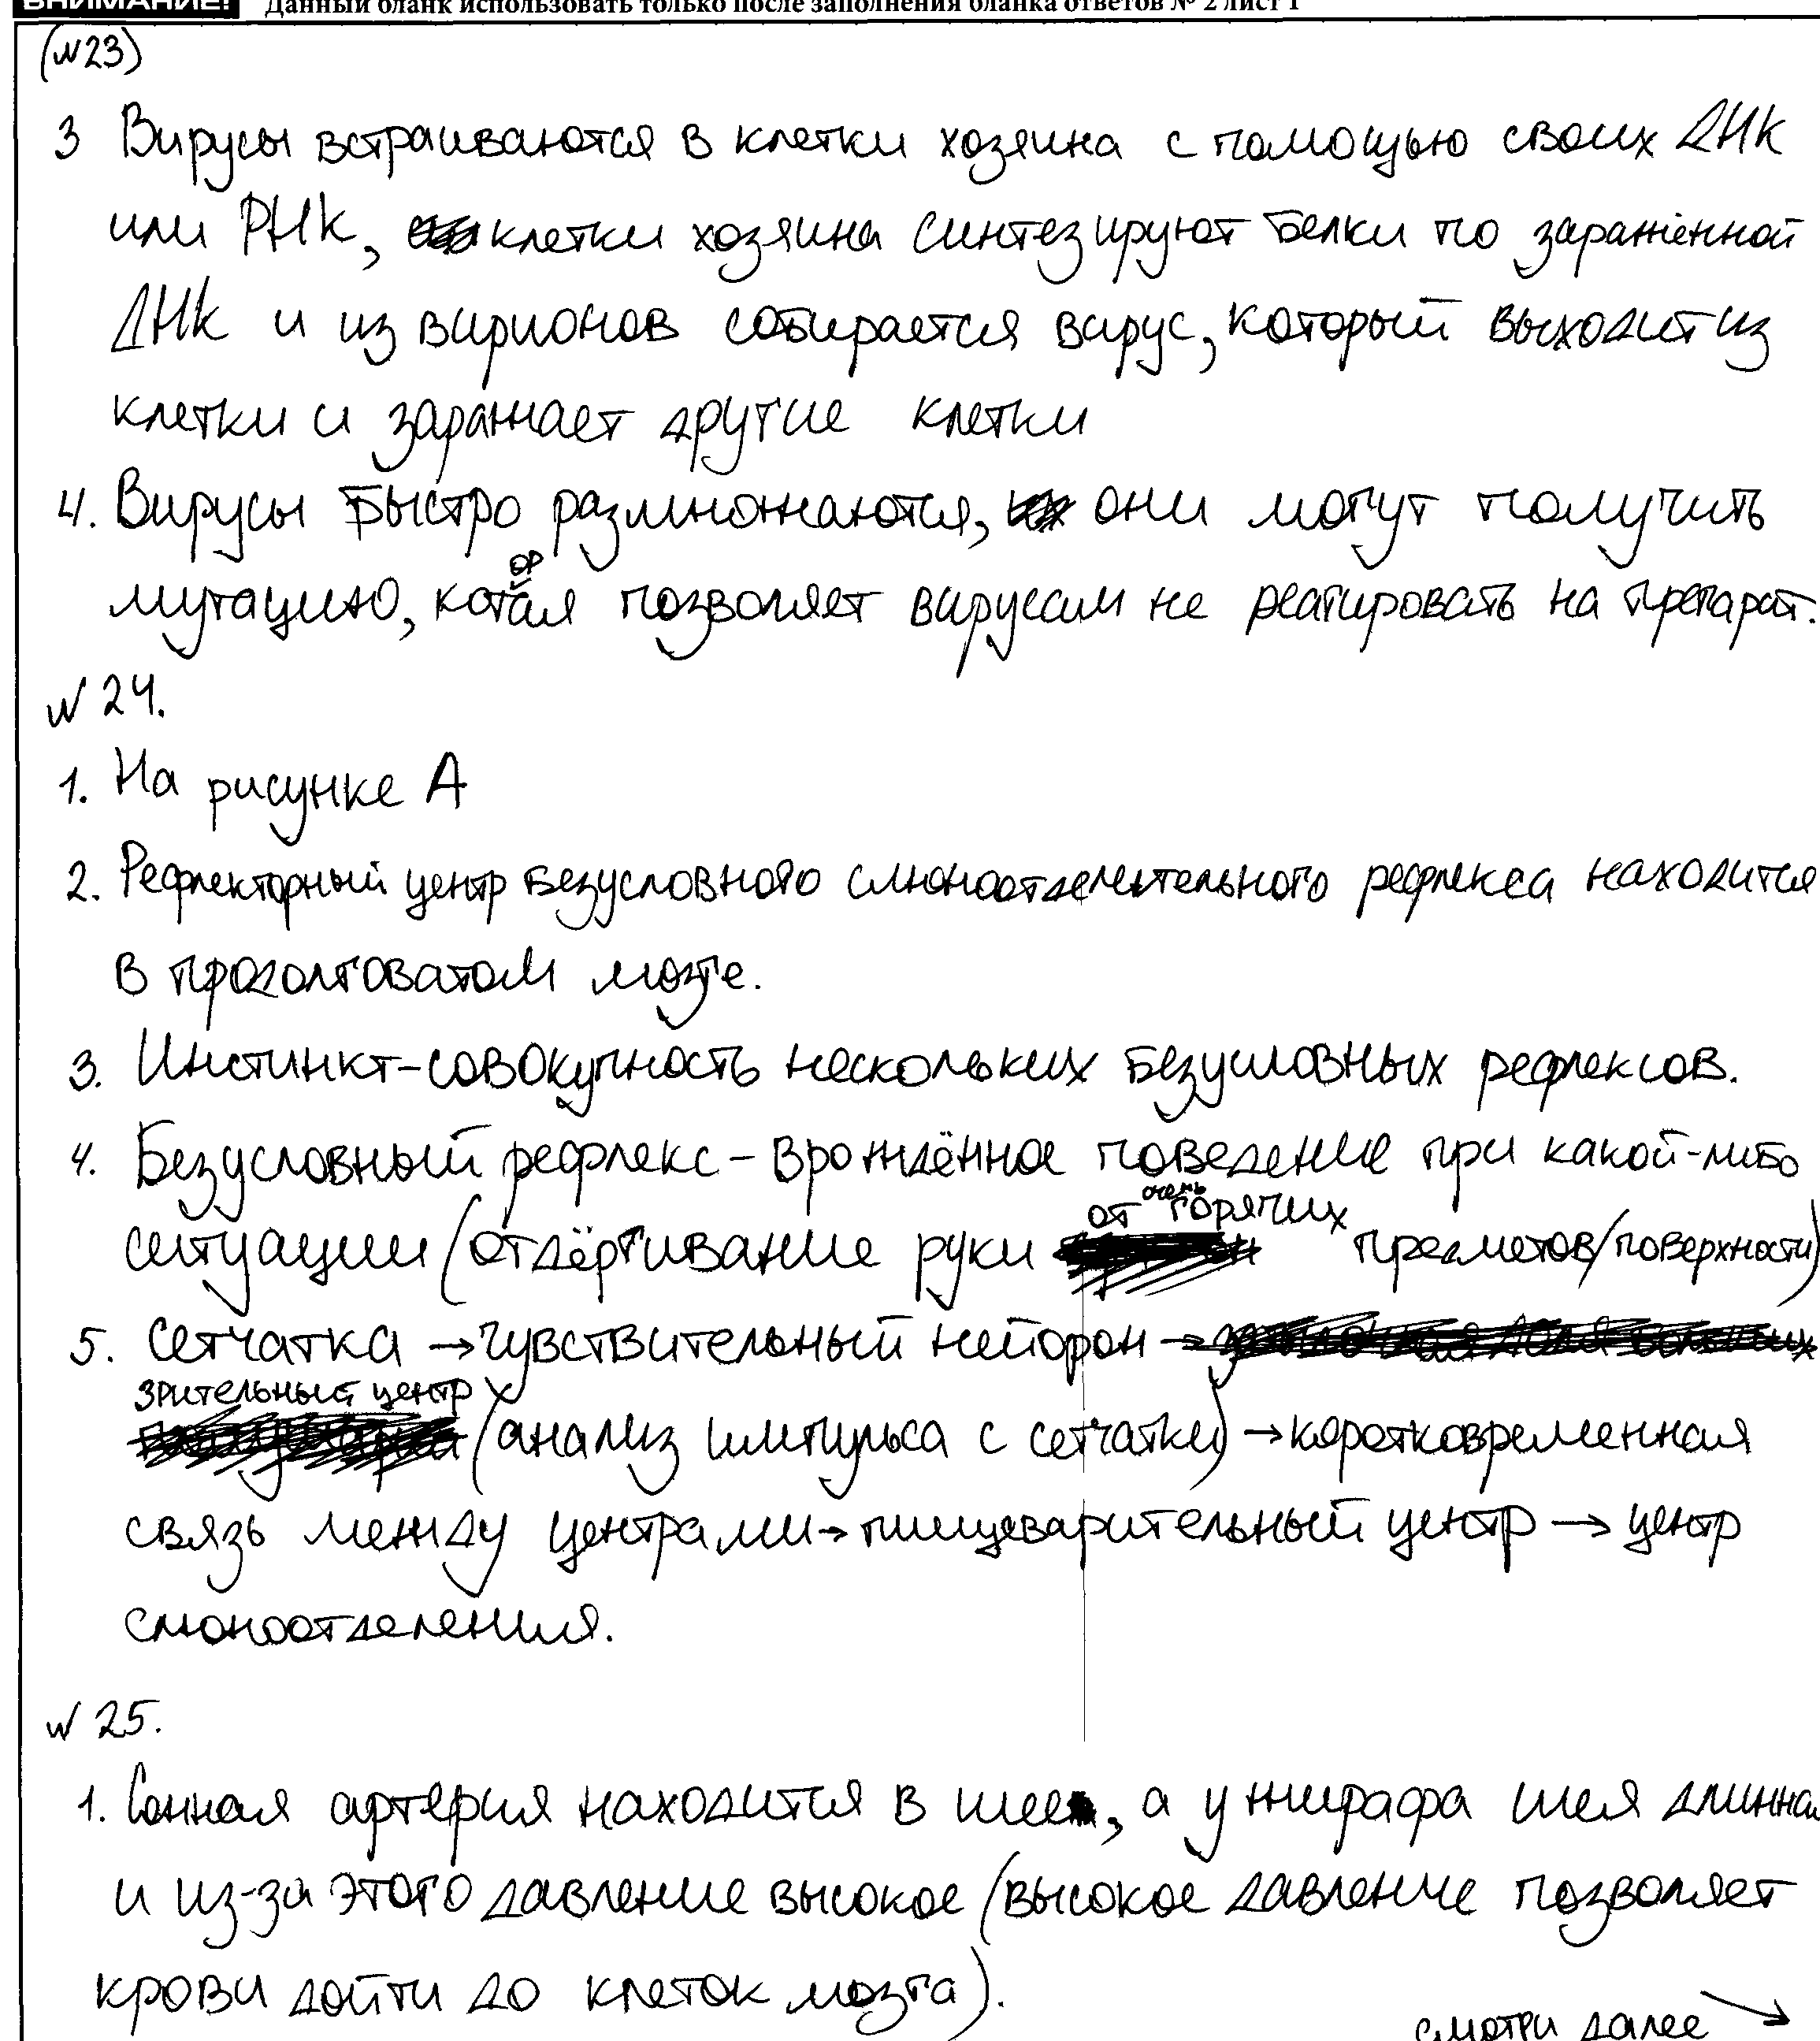 ВНИМАНИЕ! Данный бланк использовать только после заполнения бланка ответов № 2 лист 1
(N23)
3 Вирусы встраиваются в клетки хозяина с помощью своих ДНК
или РНК, клетки хозяина синтезируют белки по заражённой
ДНК и из вирионов собирается вирус, который выходит из
клетки и заражает другие клетки
4. Вирусы быстро размножаются, они могут получить
мутацию, которая позволяет вирусам не реагировать на препарат.
N 24.
1. На рисунке А
2. Рефлекторный центр безусловного слюноотделительного рефлекса находится
в продолговатом мозге.
3. Инстинкт-совокупность нескольких безусловных рефлексов.
4. Безусловный рефлекс - врождённое поведение при какой-либо
ситуации (отдёргивание руки от очень горячих предметов/поверхности)
5. Сетчатка → чувствительный нейорон →
зрительный центр (анализ импульса с сетчатки) → коротковременная
связь между центрами → пищеварительный центр → центр
слюноотделения.
N 25.
1. Сонная артерия находится в шее, а у жирафа шея длинная
и из-за этого давление высокое (высокое давление позволяет
крови дойти до клеток мозга).
смотри далее →